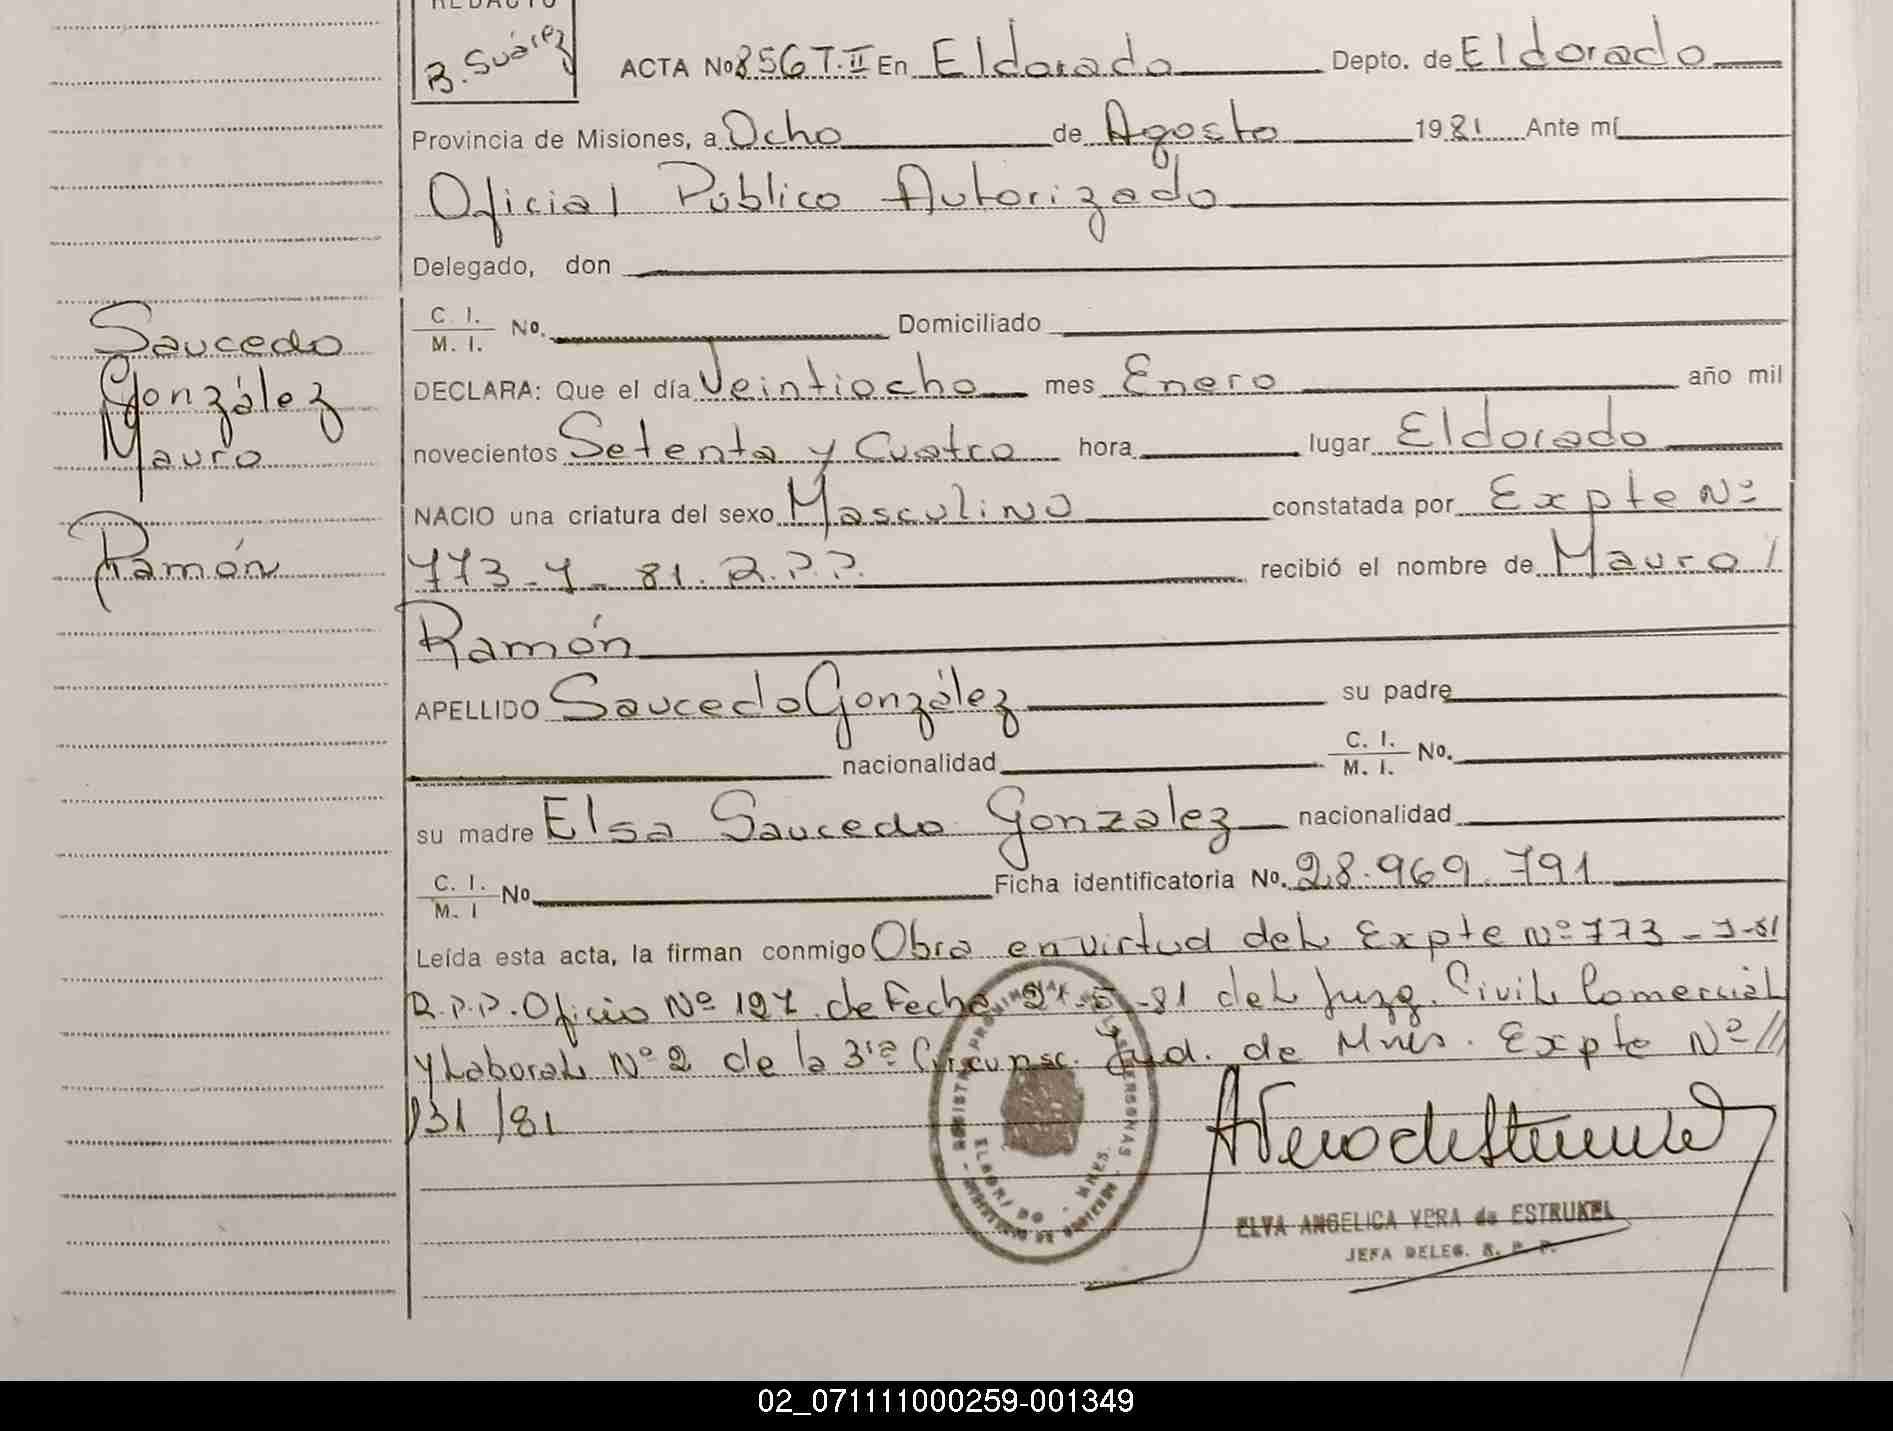 REDACTO
B. Suárez
ACTA No 856 T. II En Eldorado Depto. de Eldorado
Provincia de Misiones, a Ocho de Agosto 1981 Ante mí
Oficial Público Autorizado
Delegado, don
C. I. / M. I. No. Domiciliado
DECLARA: Que el día Veintiocho mes Enero año mil
novecientos Setenta y Cuatro hora lugar Eldorado
NACIO una criatura del sexo Masculino constatada por Expte Nº
773-7-81. R.P.P. recibió el nombre de Mauro /
Ramón
APELLIDO Saucedo González su padre
nacionalidad C. I. / M. I. No.
su madre Elsa Saucedo Gonzalez nacionalidad
C. I. / M. I No Ficha identificatoria No. 28.969.791
Leída esta acta, la firman conmigo Obra en virtud del Expte Nº 773-7-81
R.P.P. Oficio Nº 127 de Fecha 21-5-81 del Juzg. Civil Comercial
y Laboral Nº 2 de la 3ra Circunsc. Jud. de Mnes. Expte Nº //
131/81
Saucedo
González
Mauro
Ramón
ELVA ANGELICA VERA de ESTRUKEL
JEFA DELEG. R. P. P.
02_071111000259-001349